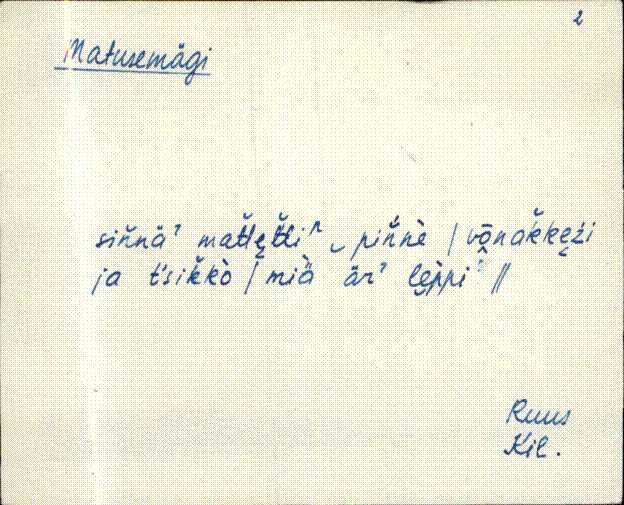 2
Matusemägi
sin̆nä' mat̆lęt̆ti ⁿ‿pin̆nè / vō̭nak̆kęźi
ja t's̆ik̆kò / miä̀ är' lęp̀pi' //
Ruus
Kil.